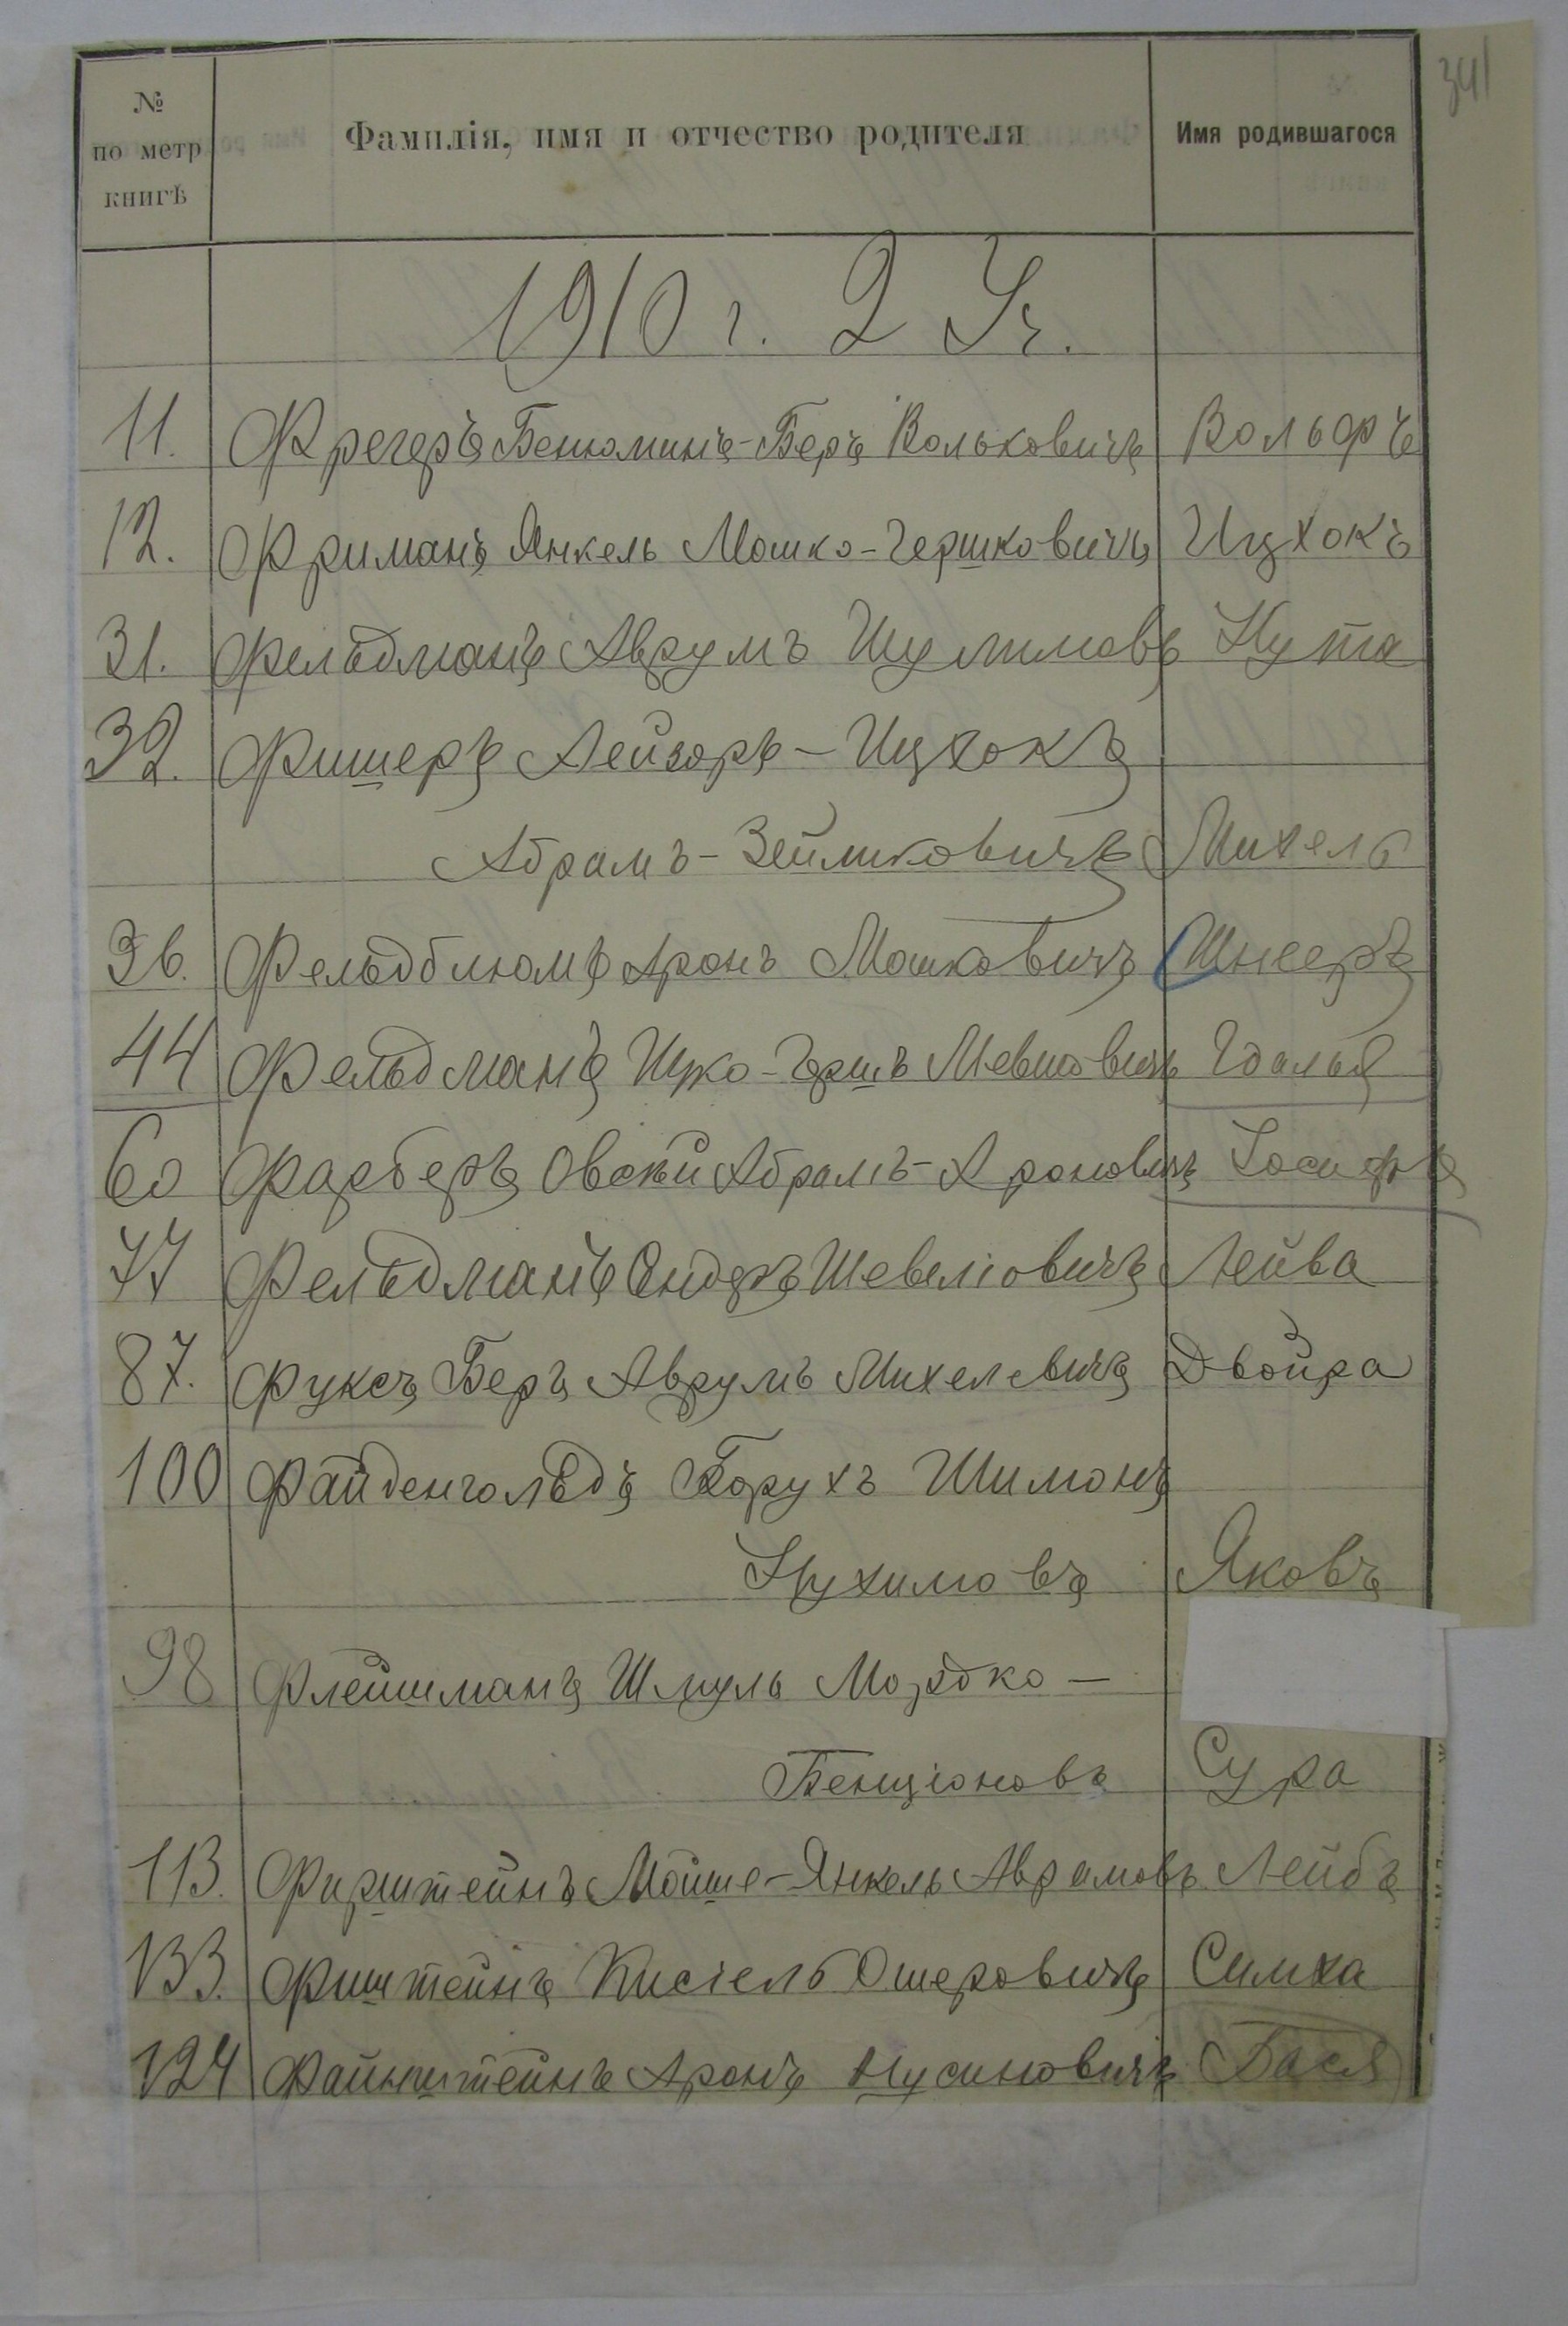 341
№ по метр книгѣ | Фамилія, имя и отчество родителя | Имя родившагося
1910 г. 2 Уч.
11. Фрегеръ Бенюминъ-Беръ Вольковичъ Вольфъ
12. Фриманъ Янкель Мошко-Гершковичъ Ицхокъ
31. Фельдманъ Аврумъ Шулимовъ Нута
32. Фишеръ Лейзоръ-Ицхокъ
Абрамъ-Зейликовичъ Михель
36. Фельдблюмъ Аронъ Мошковичъ Шнееръ
44 Фельдманъ Ицко-Гершъ Гдалья
60 Фарберъ Овсѣй Абрамъ-Ароновичъ Іосифъ
77 Фельдманъ Сендеръ Шевелiовичъ Лейва
87. Фуксъ Беръ Аврумъ Михелевичъ Двойра
100 Файденгольдъ Борухъ Шимонъ
Нухимовъ Яковъ
98 Флейшманъ Шмуль Мордко-
Бенціоновъ Сура
113. Фирштейнъ Мойше-Янкель Аврамовъ Лейбъ
133. Фиштейнъ Кисіель Ошеровичъ Симха
124 Файнштейнъ Аронъ Нусиновичъ Бася